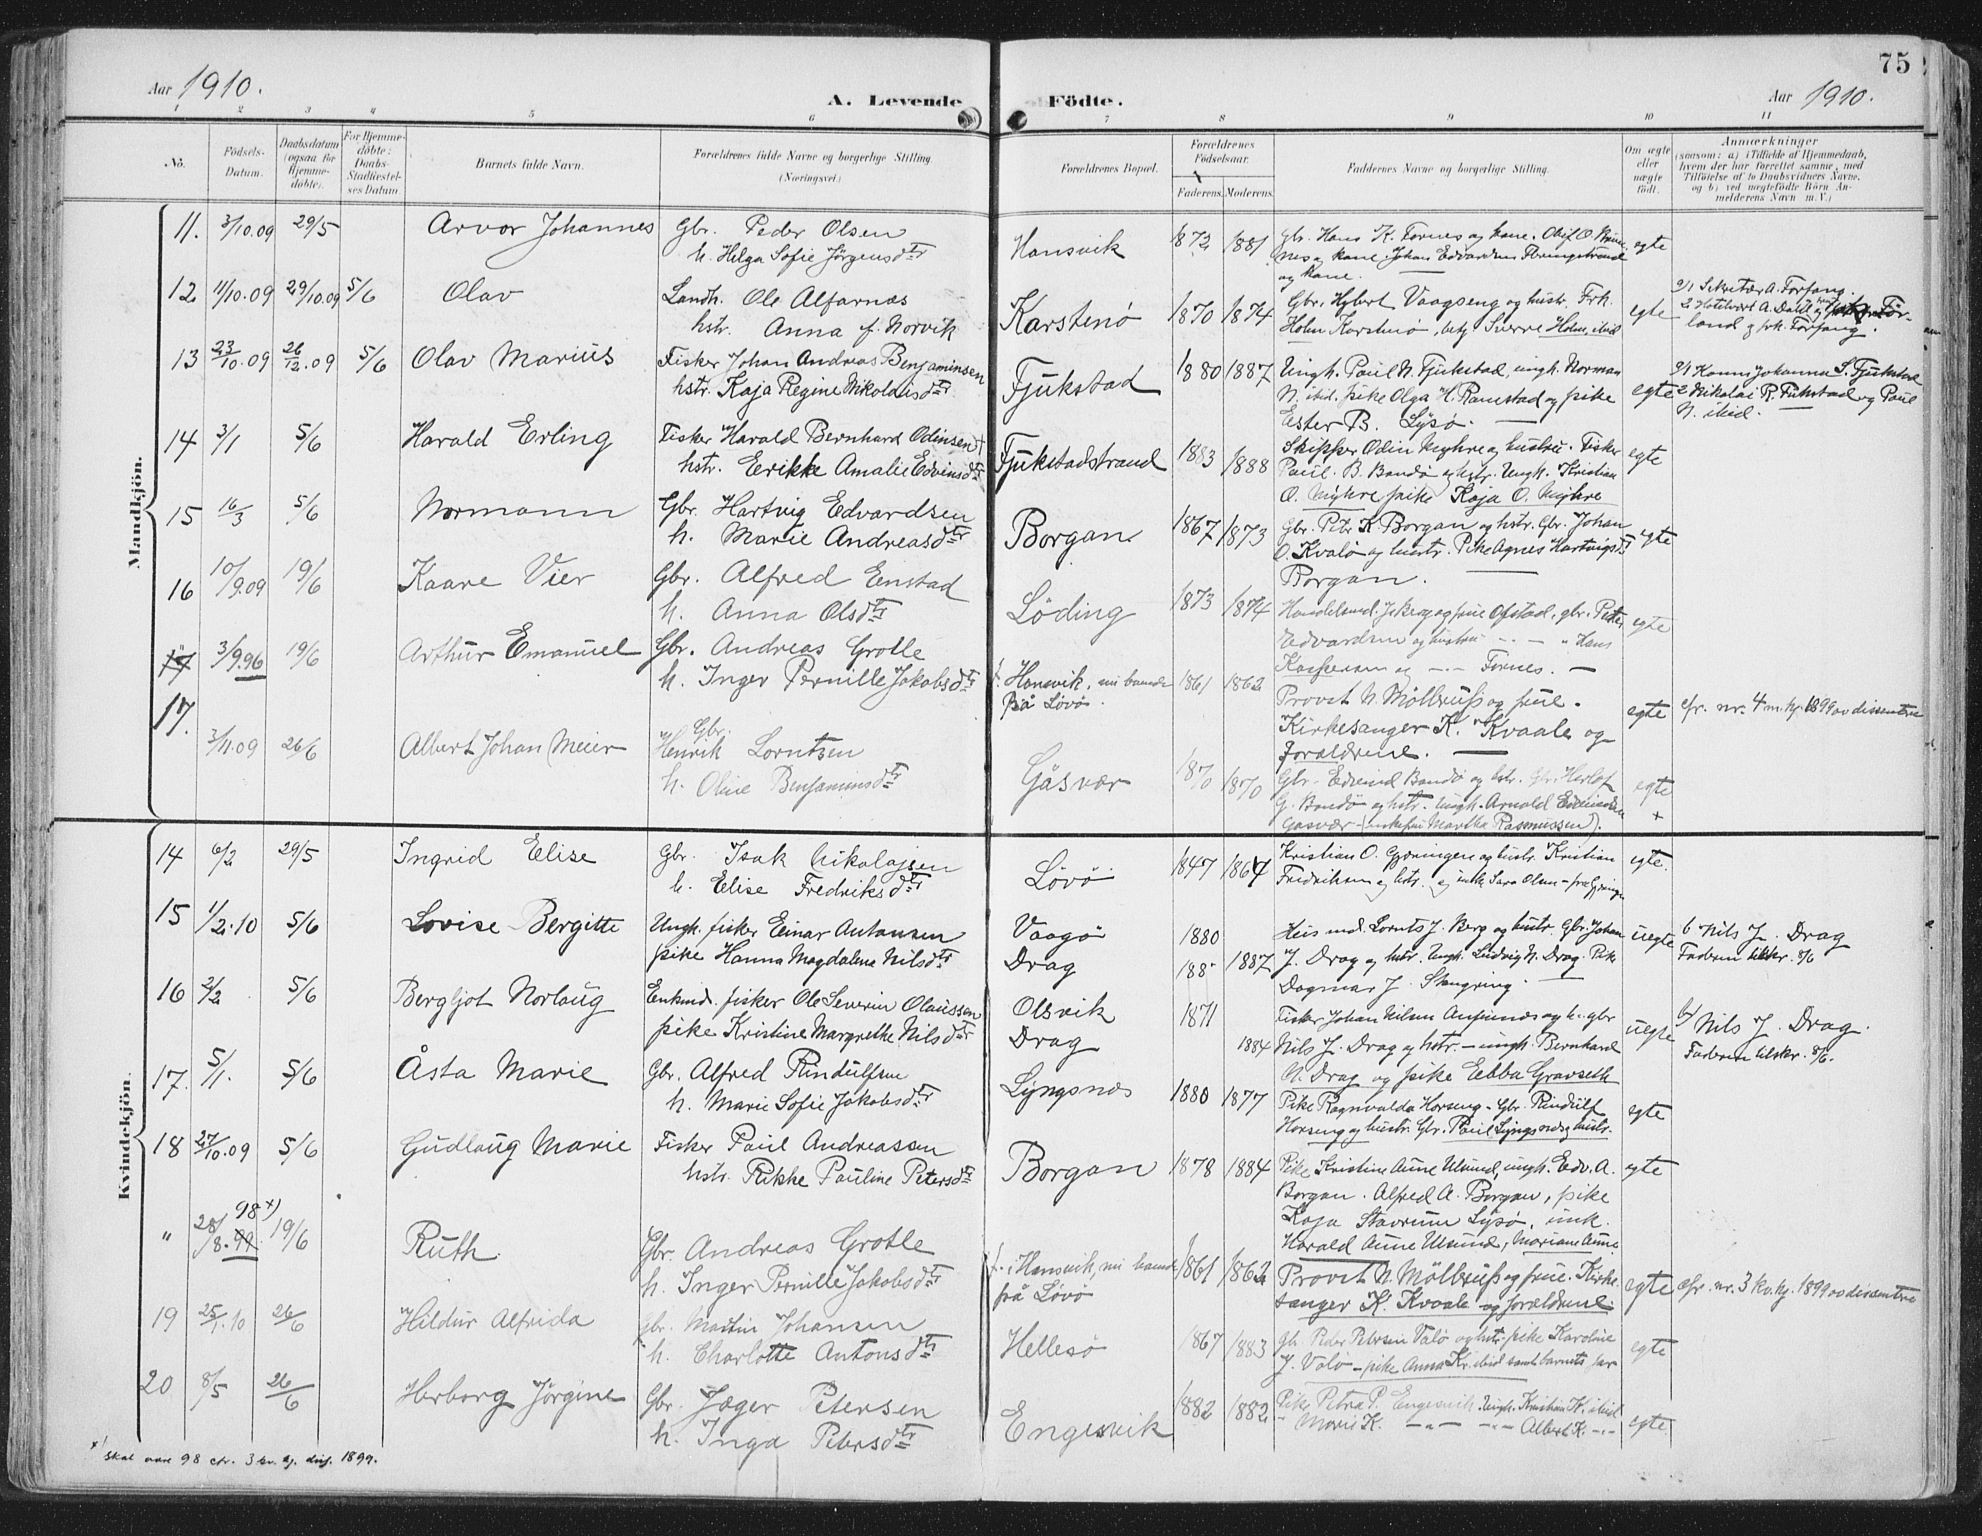 75
Aar 1910.
A. Levende Födte.
Aar 1910.
1 2 3 4 5 6 7 8 9 10 11
No.
Födsels-Datum.
Daabsdatum (ogsaa för Hjemme-döbte).
For Hjemme-döbte: Daabs-Stadfæstelses Datum.
Barnets fulde Navn.
Forældrenes fulde Navne og borgerlige Stilling. (Næringsvei.)
Forældrenes Bopæl.
Forældrenes Födselsaar.
Faderens. Moderens.
Faddernes Navne og borgerlige Stilling.
Om ægte eller uægte födt.
Anmærkninger
(saasom: a) i Tilfælde af Hjemmedaab,
hvem der har forrettet samme, med
Tilföielse af to Daabsvidners Navne,
og b) ved uægtefödte Börn An-
melderens Navn m. V.)
Mandkjön.
11. 3/10.09 29/5 Arvor Johannes Gbr. Peder Olsen
h. Helga Sofie Jörgensdtr Hansvik 1872 1881 Gbr. Hans K. Fornes og kone. Olif O.
og kone. Johan Edvardsen
og kone. egte
12 11/10.09 29/10.09 5/6 Olav Landh. Ole Alfarnæs
hstr. Anna f. Norvik Karstenö 1870 1874 Gbr. Hybert Vaagseng og hustr. Frk.
Holm Karstenö, betj. Sverre Holm, ibid egte 2/1 Sekretær A. Forfang.
2 Hotelvært A. Dahl og För-
land g frk. Forfang.
13 23/10.09 26/12.09 5/6 Olav Marius Fisker Johan Andreas Benjaminsen
hstr. Kaja Regine Nikolaisdtr Fjukstad 1880 1887 Ungk. Paul N. Fjukstad, ungk. Norman
N. ibid. pike Olga H. Ramstad og pike
Ester B. Lysö. egte 2/1 Hanna Johanna S. Fjukstad
2 Nikolai R. Fjukstad og Paul
N. ibid.
14 3/1 5/6 Harald Erling Fisker Harald Bernhard Odinsen
hstr. Eerikke Amalie Edvinsdtr Fjukstadstrand 1883 1888 Skipper Odin Myhre og hustru. Fisker
Paul B. Bondö og hstr. Ungk. Kristian
O. Myhre pike Kaja O. Myhre egte
15 16/3 5/6 Normann Gbr. Hartvig Edvardsen
h. Marie Andreasdtr Borgan 1867 1873 Gbr. Petr K. Borgan og hstr. Gbr. Johan
O. Kvalö og hustr. Pike Agnes Hartvigsdtr
Borgan. egte
16 10/9.09 19/6 Kaare Vier Gbr. Alfred Enstad
h. Anna Olsdtr Löding 1873 1874 Handelsmd. og frue Ofstad, gbr. Peter
Edvardsen og hustru -.- " Hans
Kaspersen og -.- Fornes. egte
" 3/9.96 19/6 Arthur Emanuel Gbr. Andreas Grotle
h. Inger Pernille Jakobsdtr f. i Hansvik, nu boende
på Lövö 1861 1862 Provst N. Möllbruß og frue.
Kirkesanger K. Kvaale og
forældrene. egte cfr. nr. 4 m. kj. 1899 ov dissentre
17. 3/11.09 26/6 Albert Johan Meier Gbr.
Henrik Lorntzen
h. Oline Benjaminsdtr Gåsvær 1870 1870 Gbr. Edvind Bondö og hstr. Gbr. Herlof
G. Bondö og hstr. Ungk. Arnold
Gåsvær (enkefru Martha Rasmussen). egte
+
Kvindekjön.
14 6/2 29/5 Ingrid Elise Gbr. Isak Nikolajsen
h. Elise Fredriksdtr Lövö 1847 1864 Kristian O. Gjæringen og hustr. Kristian
Fredriksen og hstr. og enk. Sara Olsen - egte.
15 1/2.10 5/6 Lovise Bergitte Ungk. fisker Einar Antonsen
pike Hanna Magdalena Nilsdtr Vaagö
Drag 1880
188- 1887 Lornts J. Berg og hustr. Gbr. Johan
J. Drag og hstr. Ungk. Ludvig N. Drag. Pike
Dagmar J. Stangring. uegte b Nils J. Drag
Faderen tilskr. 8/6
16 2/2 5/6 Bergljot Norlaug Enkmd. fisker Ole Severin Olaussen
pike Kristine Margrethe Nilsdtr Olsvik
Drag 1871
1884 Fisker Johan Nilsen og h. gbr
Nils J. Drag og hstr. - ungk. Bernhard
N. Drag og pike Ebba Gravseth uegte b/ Nils J. Drag.
Faderen tilskr. 8/6.
17. 5/1. 5/6 Åsta Marie Gbr. Alfred Rindulfsen
h. Marie Sofie Jakobsdtr Lyngsnæs 1880 1877 Pike Ragnvalda Horseng - Gbr. Rindulf
Horseng og hustr. Gbr. Paul Lyngsnæs og hustr. egte
18 27/10.09 5/6 Gudlaug Marie Fisker Paul Andreassen
hstr. Rikke Pauline Petersdtr Borgan 1878 1884 Pike Kristine Aune Ulsund, ungk. Edv. A.
Borgan. Alfred A. Borgan, pike
Kaja Stavrum Lysö, unk.
Harald Aune Ulsund, Mariane Aune egte
" 28/8.99 98 x) 19/6 Ruth Gbr. Andreas Grotle
h. Inger Pernille Jakobsdtr f. i Hansvik, nu boende
på Lövö 1861 1862 Provst N. Möllbruß og frue. Kirke-
sanger K. Kvaale og forældrene egte cfr. nr. 3 kv. kj. 1899 ov dissentre
19 25/1.10 26/6 Hildur Alfrida Gbr. Martin Johansen
h. Charlotte Antonsdtr Hellesö 1867 1883 Gb. Peder Petersen Valö og hstr. pike Karoline
J. Valö - pike Anna Kr. ibid samt barnets far egte
20 8/5 26/6 Herborg Jörgine Gbr. Jæger Petersen
h. Inga Petersdtr Engesvik 1882 1882 Pike Petra P. Engesvik. Ungk. Kristian K. ibid
" Marie K. -"- -"- Albert K. -"- egte
x) skal være 98 cfr. 3 kv. kj. dis. 1899.